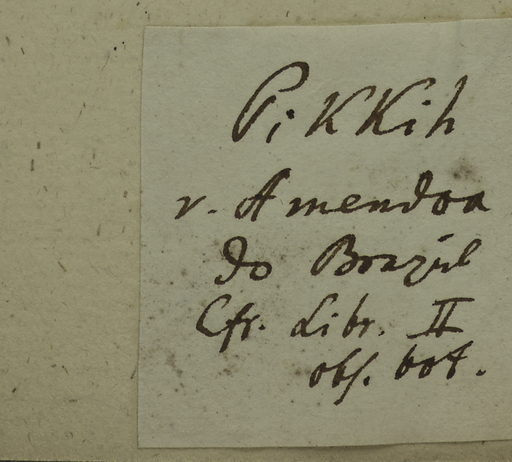 Pikkih
v. Amendoa
do Brazil
Cfr. Libr. II
obs. bot.